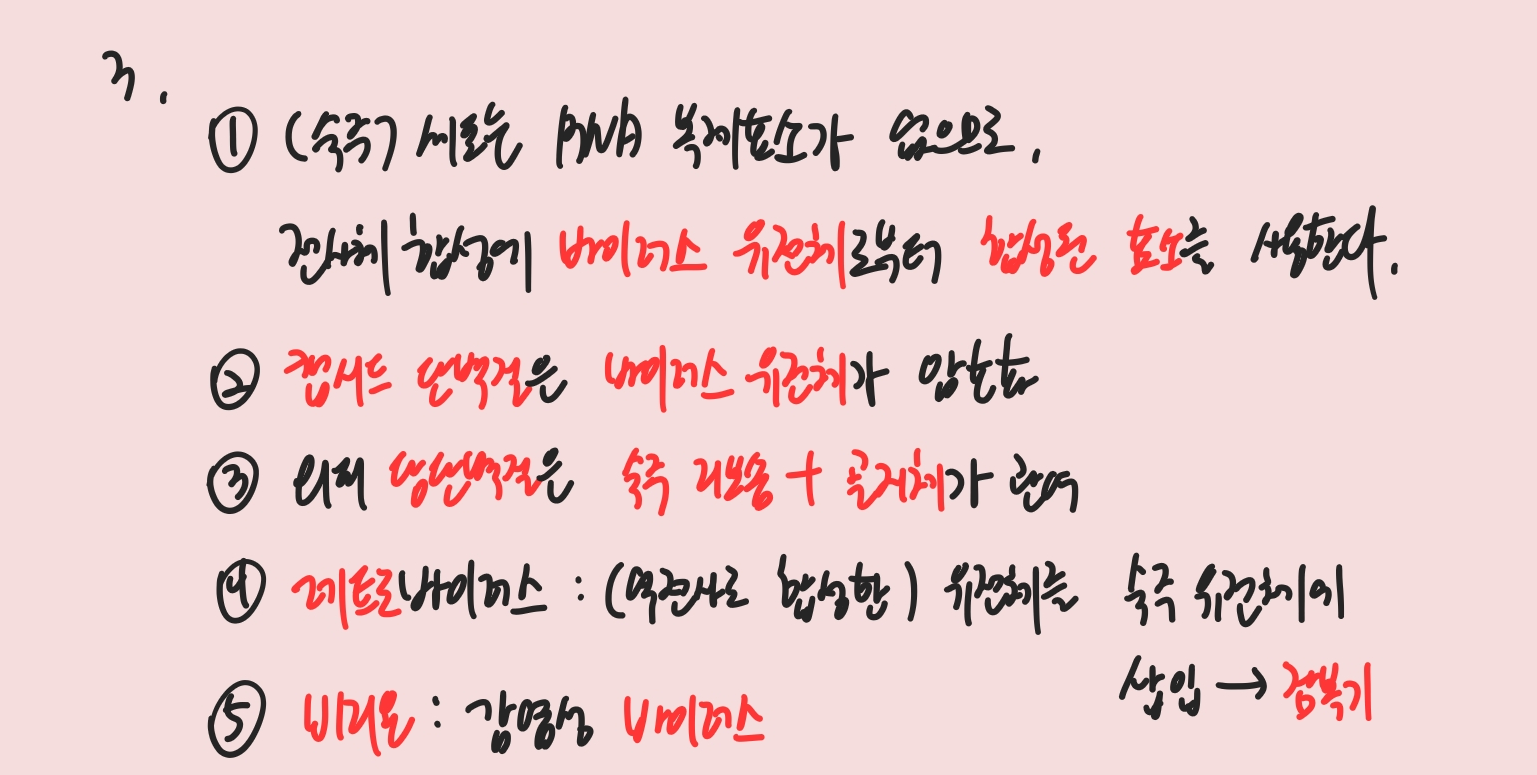 3.
① (숙주) 세포는 RNA 복제효소가 없으므로,
전사체 합성에 바이러스 유전체로부터 합성된 효소를 사용한다.
② 캡시드 단백질은 바이러스 유전체가 암호화
③ 외피 당단백질은 숙주 리보솜 + 골지체가 관여
④ 레트로바이러스 : (역전사로 합성한) 유전체는 숙주 유전체에
삽입 → 잠복기
⑤ 비리온 : 감염성 바이러스